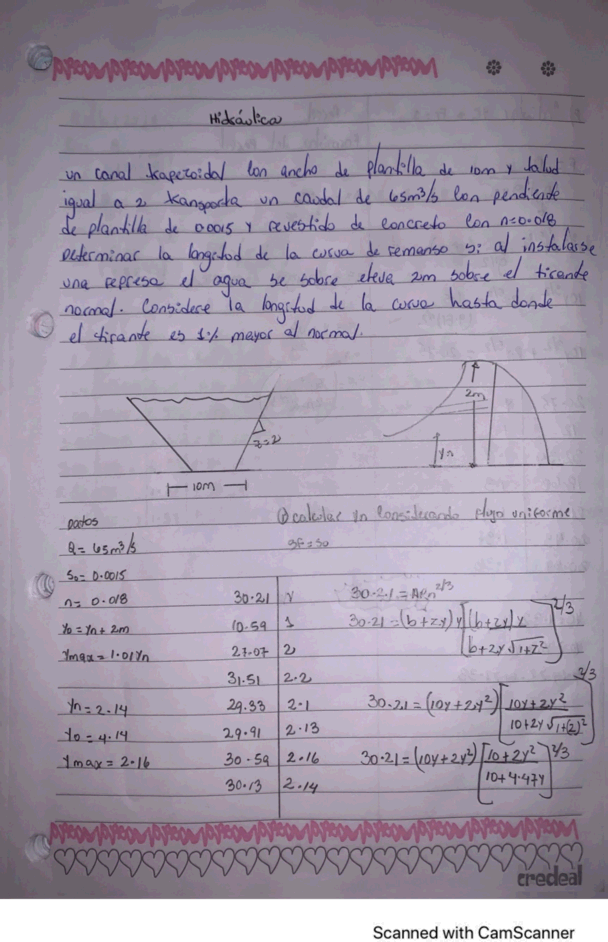 Hidráulica
un canal trapezoidal con ancho de plantilla de 10m y talud
igual a 2 transporta un caudal de 65m³/s con pendiente
de plantilla de 0.0015 y revestido de concreto con n=0.018
Determinar la longitud de la curva de remanso si al instalarse
una represa el agua se sobre eleva 2m sobre el tirante
normal. Considere la longitud de la curva hasta donde
el tirante es 1% mayor al normal.
z=2
10m
2m
yn
Datos
Q = 65m³/s
S₀ = 0.0015
n = 0.018
Y₀ = Yn + 2m
Ymax = 1.01Yn
Yn = 2.14
Y₀ = 4.14
Ymax = 2.16
① calcular Yn considerando flujo uniforme
Sf = S₀
30.21 | Y
10.59 | 1
27.07 | 2
31.51 | 2.2
29.33 | 2.1
29.91 | 2.13
30.59 | 2.16
30.13 | 2.14
30.21 = ARn^2/3
30.21 = (b+zy)y [(b+zy)y / b+2y√1+z²]^2/3
30.21 = (10y+2y²) [10y+2y² / 10+2y√1+(2)²]^2/3
30.21 = (10y+2y²) [10+2y² / 10+4.47y]^2/3
credeal
Scanned with CamScanner